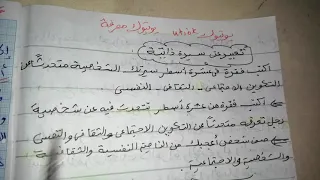 تعبير عن سيرة ذاتية
أكتب فقرة في عشرة أسطر سيرتك الشخصية متحدثًا عن
التكوين الاجتماعي الثقافي النفسي
أكتب فقرة من عشرة أسطر تتحدث فيه عن شخصية
رجل تعرفه متحدثا عن التكوين الاجتماعي والثقافي والنفسي
عن شخص أعجبك من الناحية النفسية والثقافية
والشخصية والاجتماعية